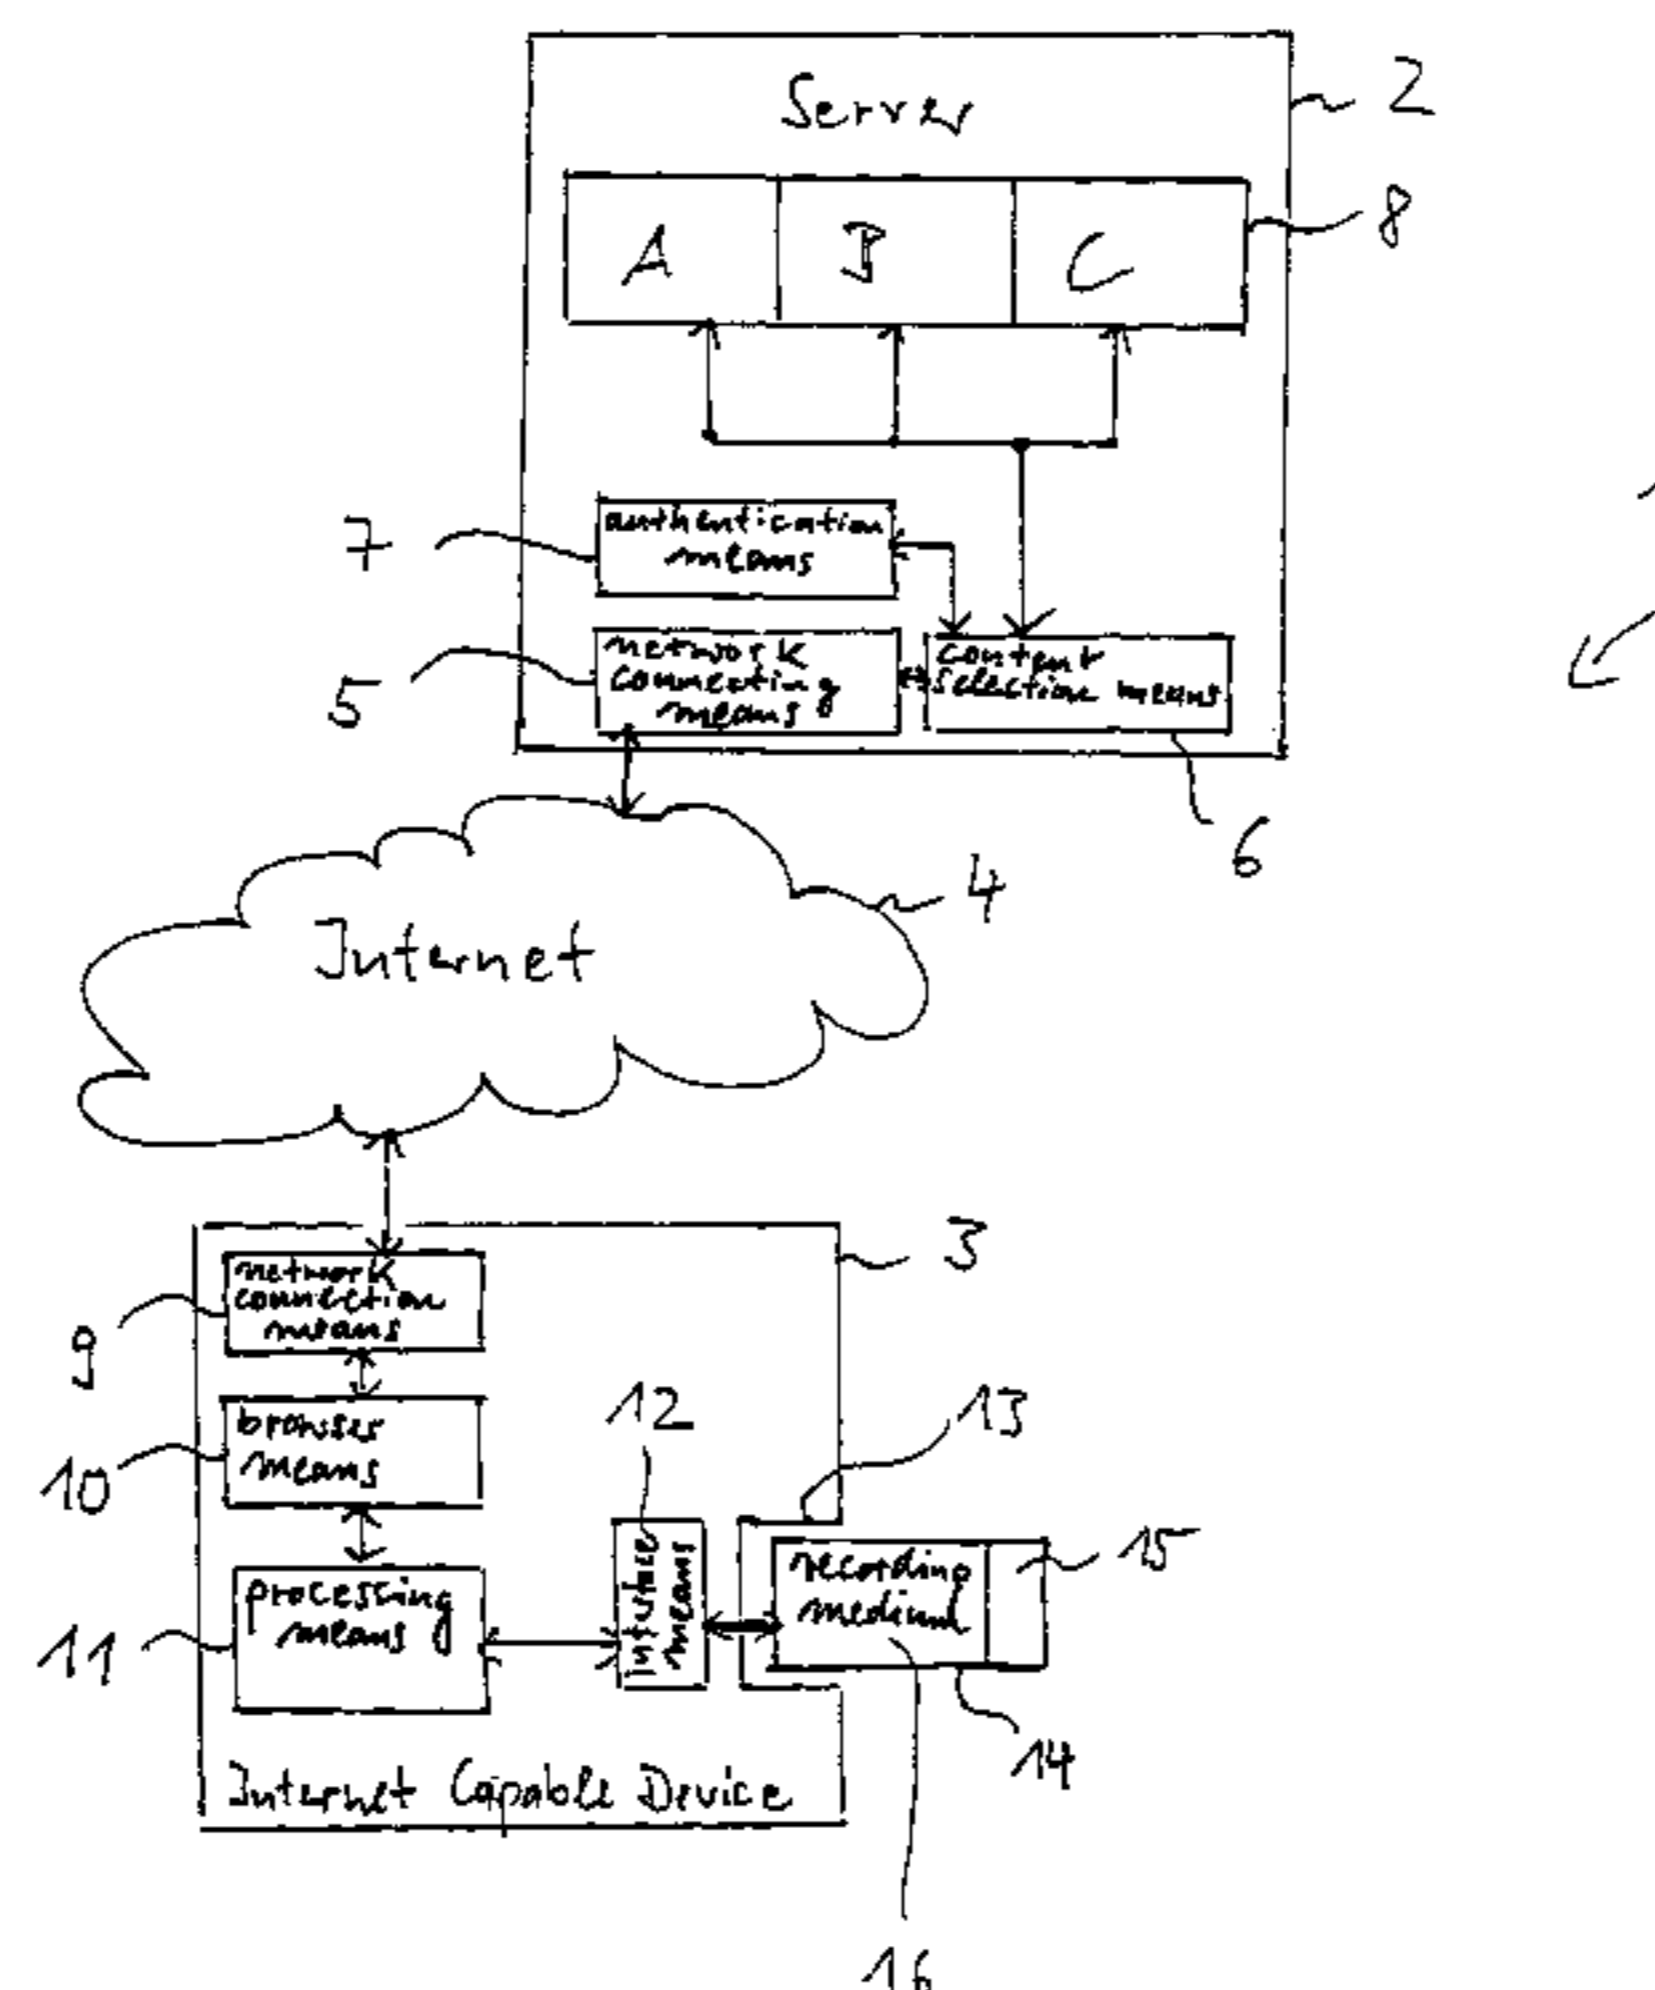 Server
2
A B C
8
7
authentication
means
5
network
connecting
means
content
selection means
6
Internet
4
3
network
connection
means
9
browser
means
10
12
13
processing
means
11
interface
means
recording
medium
15
14
Internet Capable Device
16